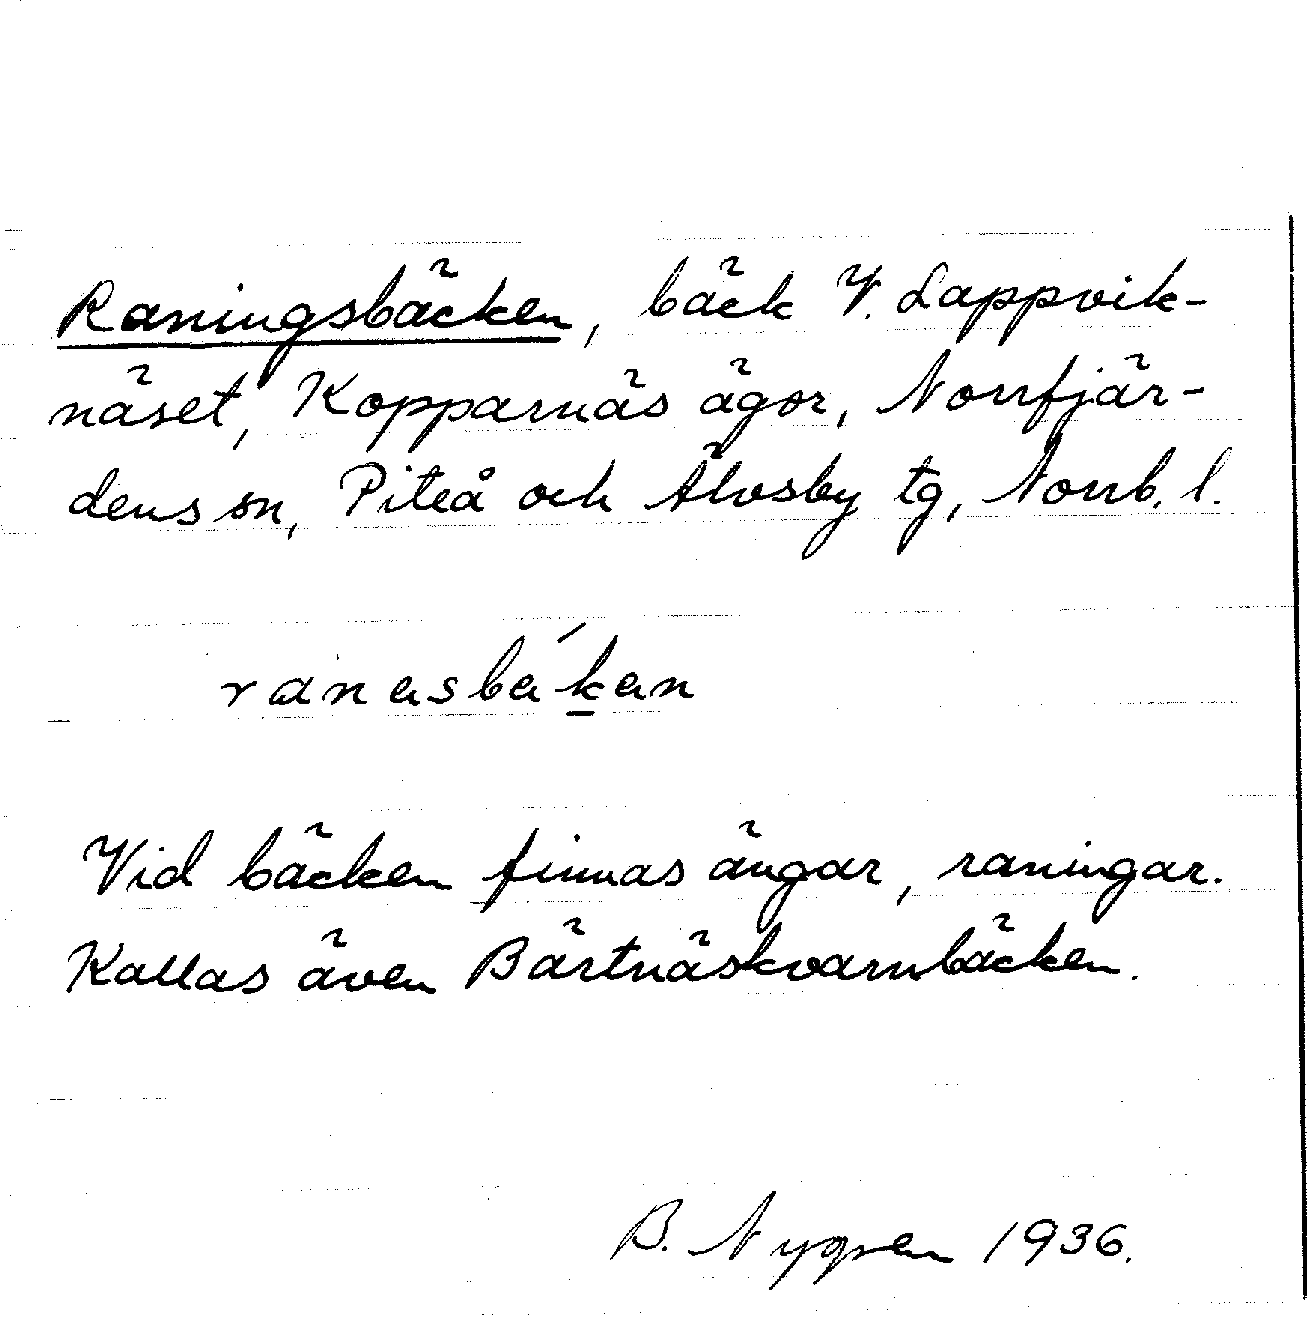 Raningsbäcken, bäck V. Lappvik-
näset, Kopparnäs ägor, Norrfjär-
dens sn, Piteå och Älvsby tg, Norrb. l.
ranasbákan
Vid bäcken finnas ängar, raningar.
Kallas även Bärtnäskvarnbäcken.
B. Nygren 1936.